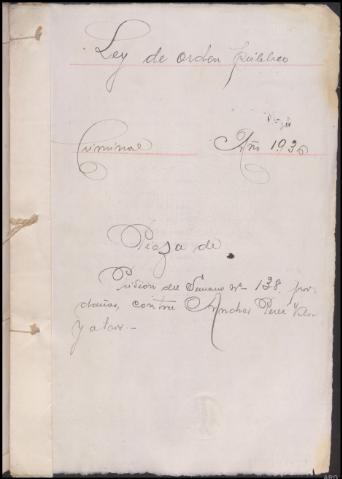 Ley de orden público
Criminal Año 1936
Pieza de
Prisión del Sumario nº 138, por
daños, contra Andres Perez
y otros.-